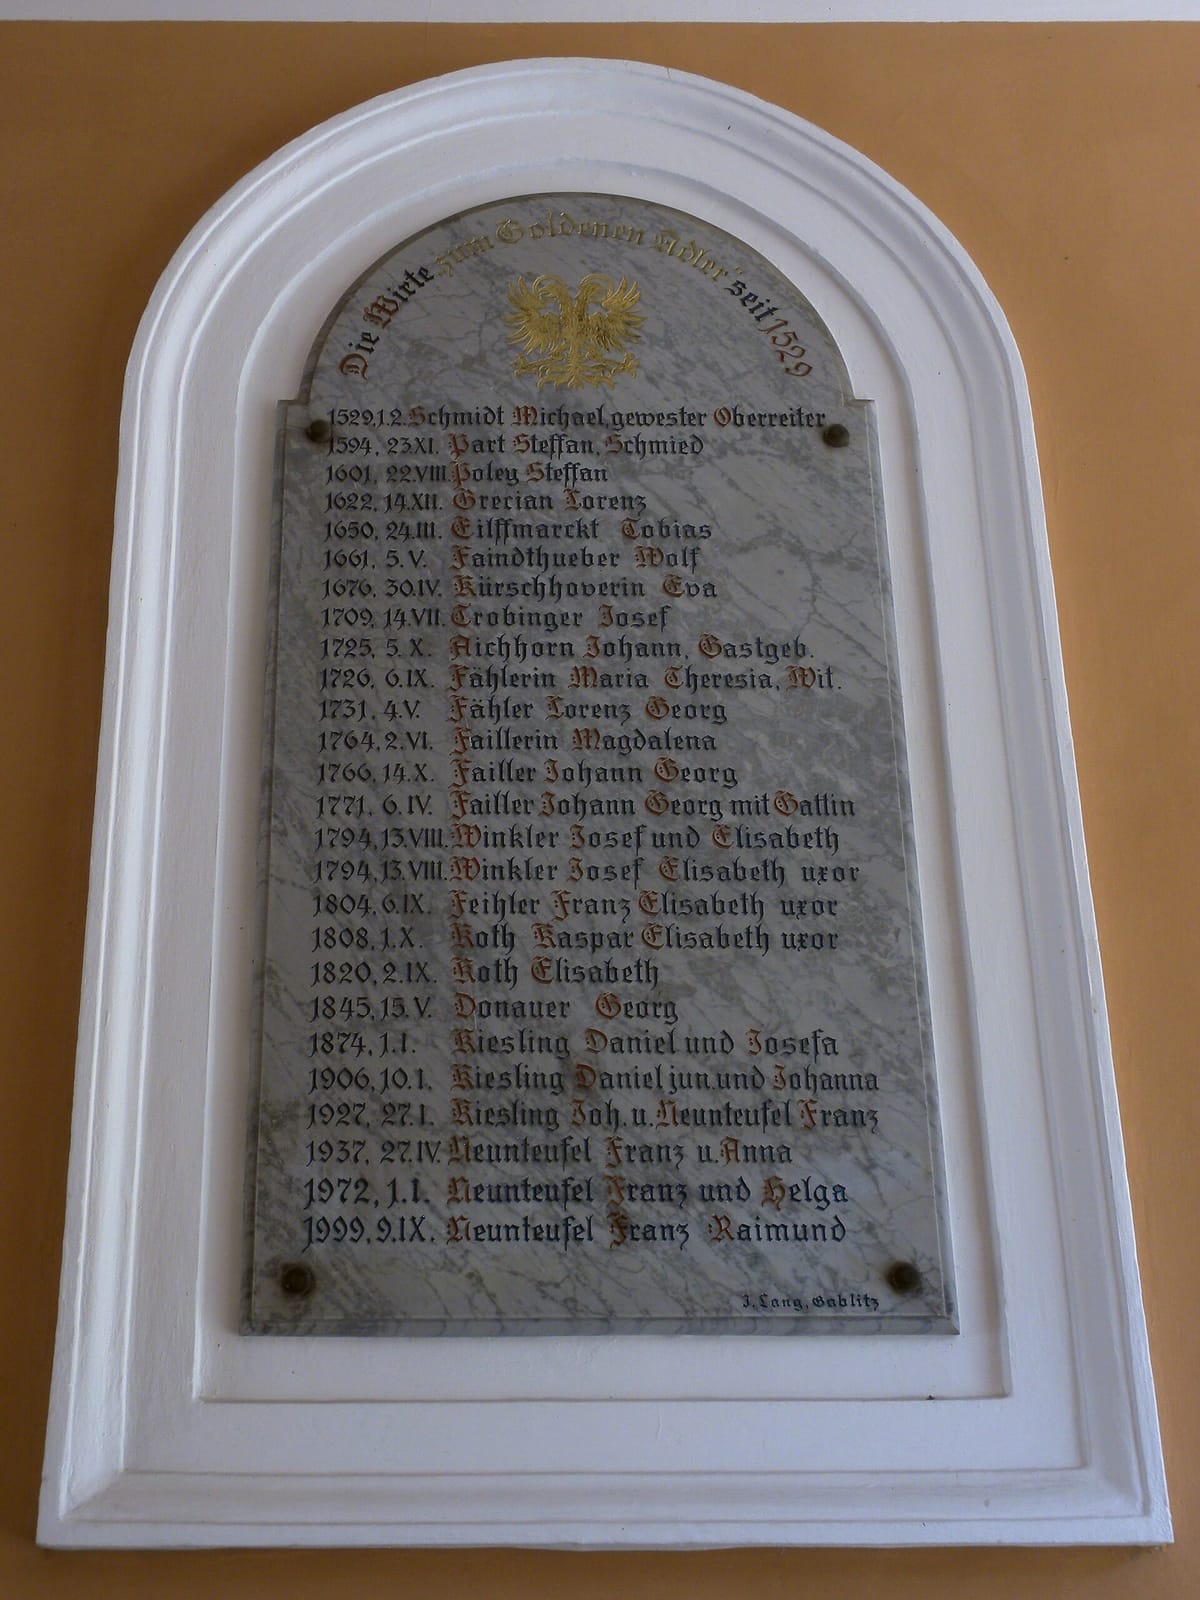 Die Wirte „zum Goldenen Adler“ seit 1529
1529,1.2. Schmidt Michael, gewester Oberreiter
1594, 23.XI. Part Steffan, Schmied
1601, 22.VIII. Poley Steffan
1622, 14.XII. Grecian Lorenz
1650, 24.III. Eilffmarckt Tobias
1661, 5.V. Faindthueber Wolf
1676, 30.IV. Kürschhoverin Eva
1709, 14.VII. Trobinger Josef
1725, 5.X. Aichhorn Johann, Gastgeb.
1726, 6.IX. Fählerin Maria Theresia, Wit.
1731, 4.V. Fähler Lorenz Georg
1764, 2.VI. Faillerin Magdalena
1766, 14.X. Failler Johann Georg
1771, 6.IV. Failler Johann Georg mit Gattin
1794, 13.VIII. Winkler Josef und Elisabeth
1794, 13.VIII. Winkler Josef Elisabeth uxor
1804, 6.IX. Feihler Franz Elisabeth uxor
1808, 1.X. Koth Kaspar Elisabeth uxor
1820, 2.IX. Koth Elisabeth
1845, 15.V. Donauer Georg
1874, 1.I. Kiesling Daniel und Josefa
1906, 10.1. Kiesling Daniel jun. und Johanna
1927, 27.I. Kiesling Joh. u. Neunteufel Franz
1937, 27.IV. Neunteufel Franz u. Anna
1972, 1.I. Neunteufel Franz und Helga
1999, 9.IX. Neunteufel Franz Raimund
J. Lang, Gablitz